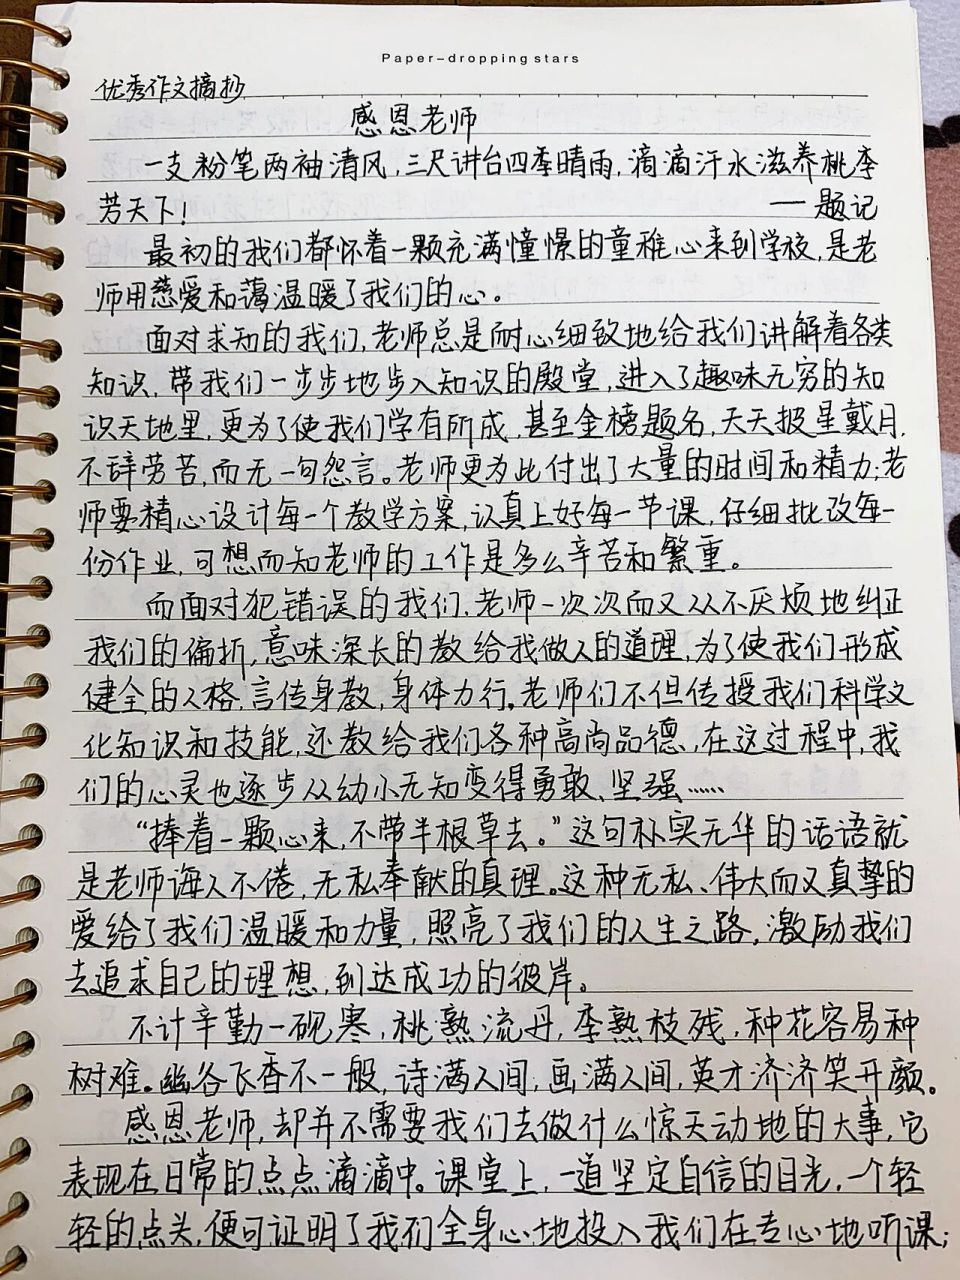 Paper-dropping stars
优秀作文摘抄
感恩老师
一支粉笔两袖清风,三尺讲台四季晴雨,滴滴汗水滋养桃李
芳天下!
一题记
最初的我们都怀着一颗充满憧憬的童稚心来到学校,是老
师用慈爱和蔼温暖了我们的心。
面对求知的我们,老师总是耐心细致地给我们讲解着各类
知识,带我们一步步地步入知识的殿堂,进入了趣味无穷的知
识天地里,更为了使我们学有所成,甚至金榜题名,天天披星戴月,
不辞劳苦,而无一句怨言。老师更为此付出了大量的时间和精力;老
师要精心设计每一个教学方案,认真上好每一节课,仔细批改每一
份作业,可想而知老师的工作是多么辛苦和繁重。
而面对犯错误的我们,老师一次次而又从不厌烦地纠正
我们的偏折,意味深长的教给我做人的道理,为了使我们形成
健全的人格,言传身教,身体力行。老师们不但传授我们科学文
化知识和技能,还教给我们各种高尚品德,在这过程中,我
们的心灵也逐步从幼小无知变得勇敢、坚强……
“捧着一颗心来,不带半根草去。”这句朴实无华的话语就
是老师诲人不倦,无私奉献的真理。这种无私、伟大而又真挚的
爱给了我们温暖和力量,照亮了我们的人生之路,激励我们
去追求自己的理想,到达成功的彼岸。
不计辛勤一砚寒,桃熟流丹,李熟枝残,种花容易种
树难。幽谷飞香不一般,诗满人间,画满人间,英才济济笑开颜。
感恩老师,却并不需要我们去做什么惊天动地的大事,它
表现在日常的点点滴滴中。课堂上,一道坚定自信的目光,一个轻
轻的点头,便可证明了我们全身心地投入我们在专心地听课;